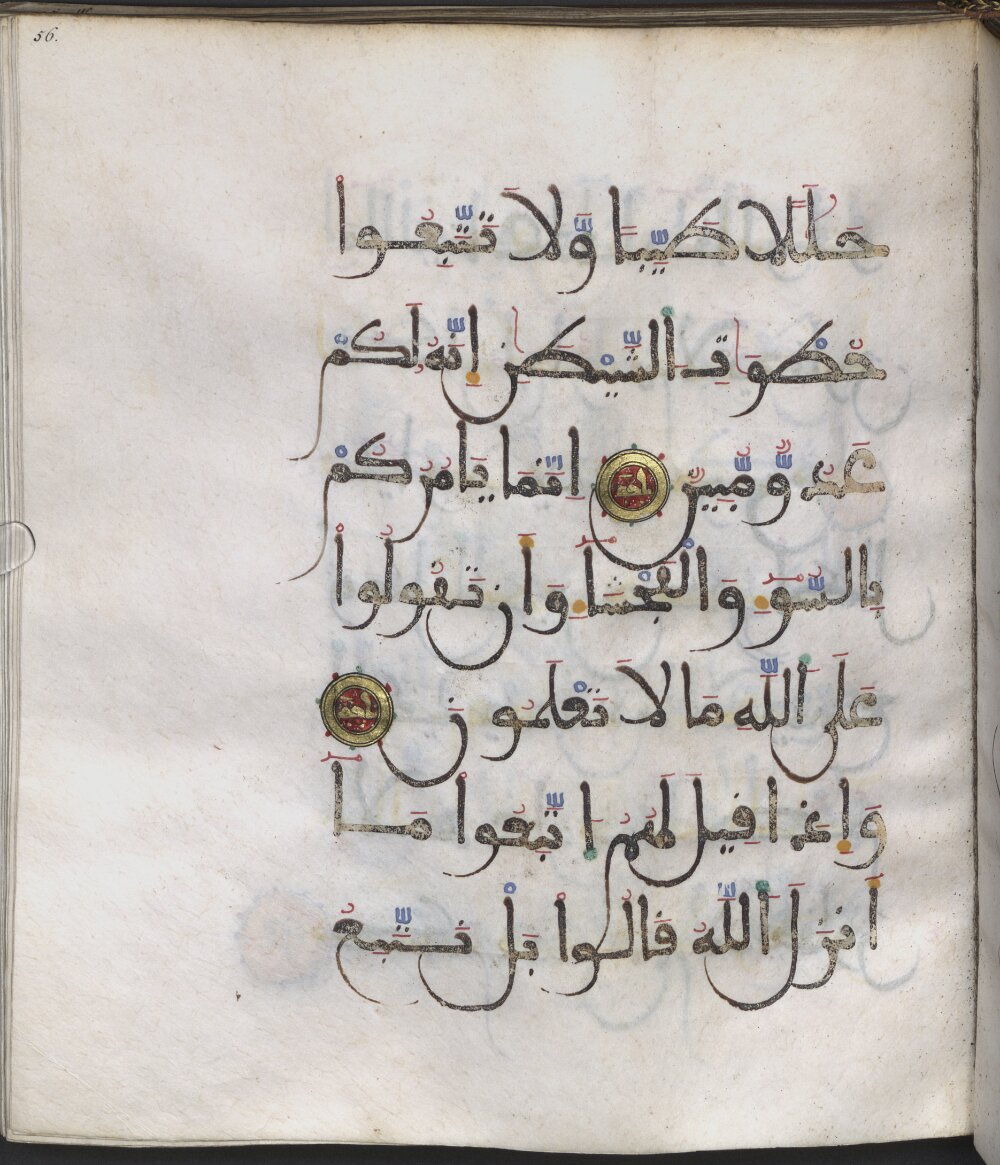 56.
حَلَٰلًا طَيِّبًا وَّلَا تَتَّبِعُوا
خُطْوَاتِ الشَّيْطَٰنِ إِنَّهُ لَكُمْ
عَدُوٌّ مُّبِينٌ إِنَّمَا يَامُرُكُمْ
بِالسُّوءِ وَالْفَحْشَاءِ وَأَن تَقُولُوا
عَلَى اللَّهِ مَا لَا تَعْلَمُونَ
وَإِذَا قِيلَ لَهُمُ اتَّبِعُوا مَا
أَنزَلَ اللَّهُ قَالُوا بَلْ نَتَّبِعُ